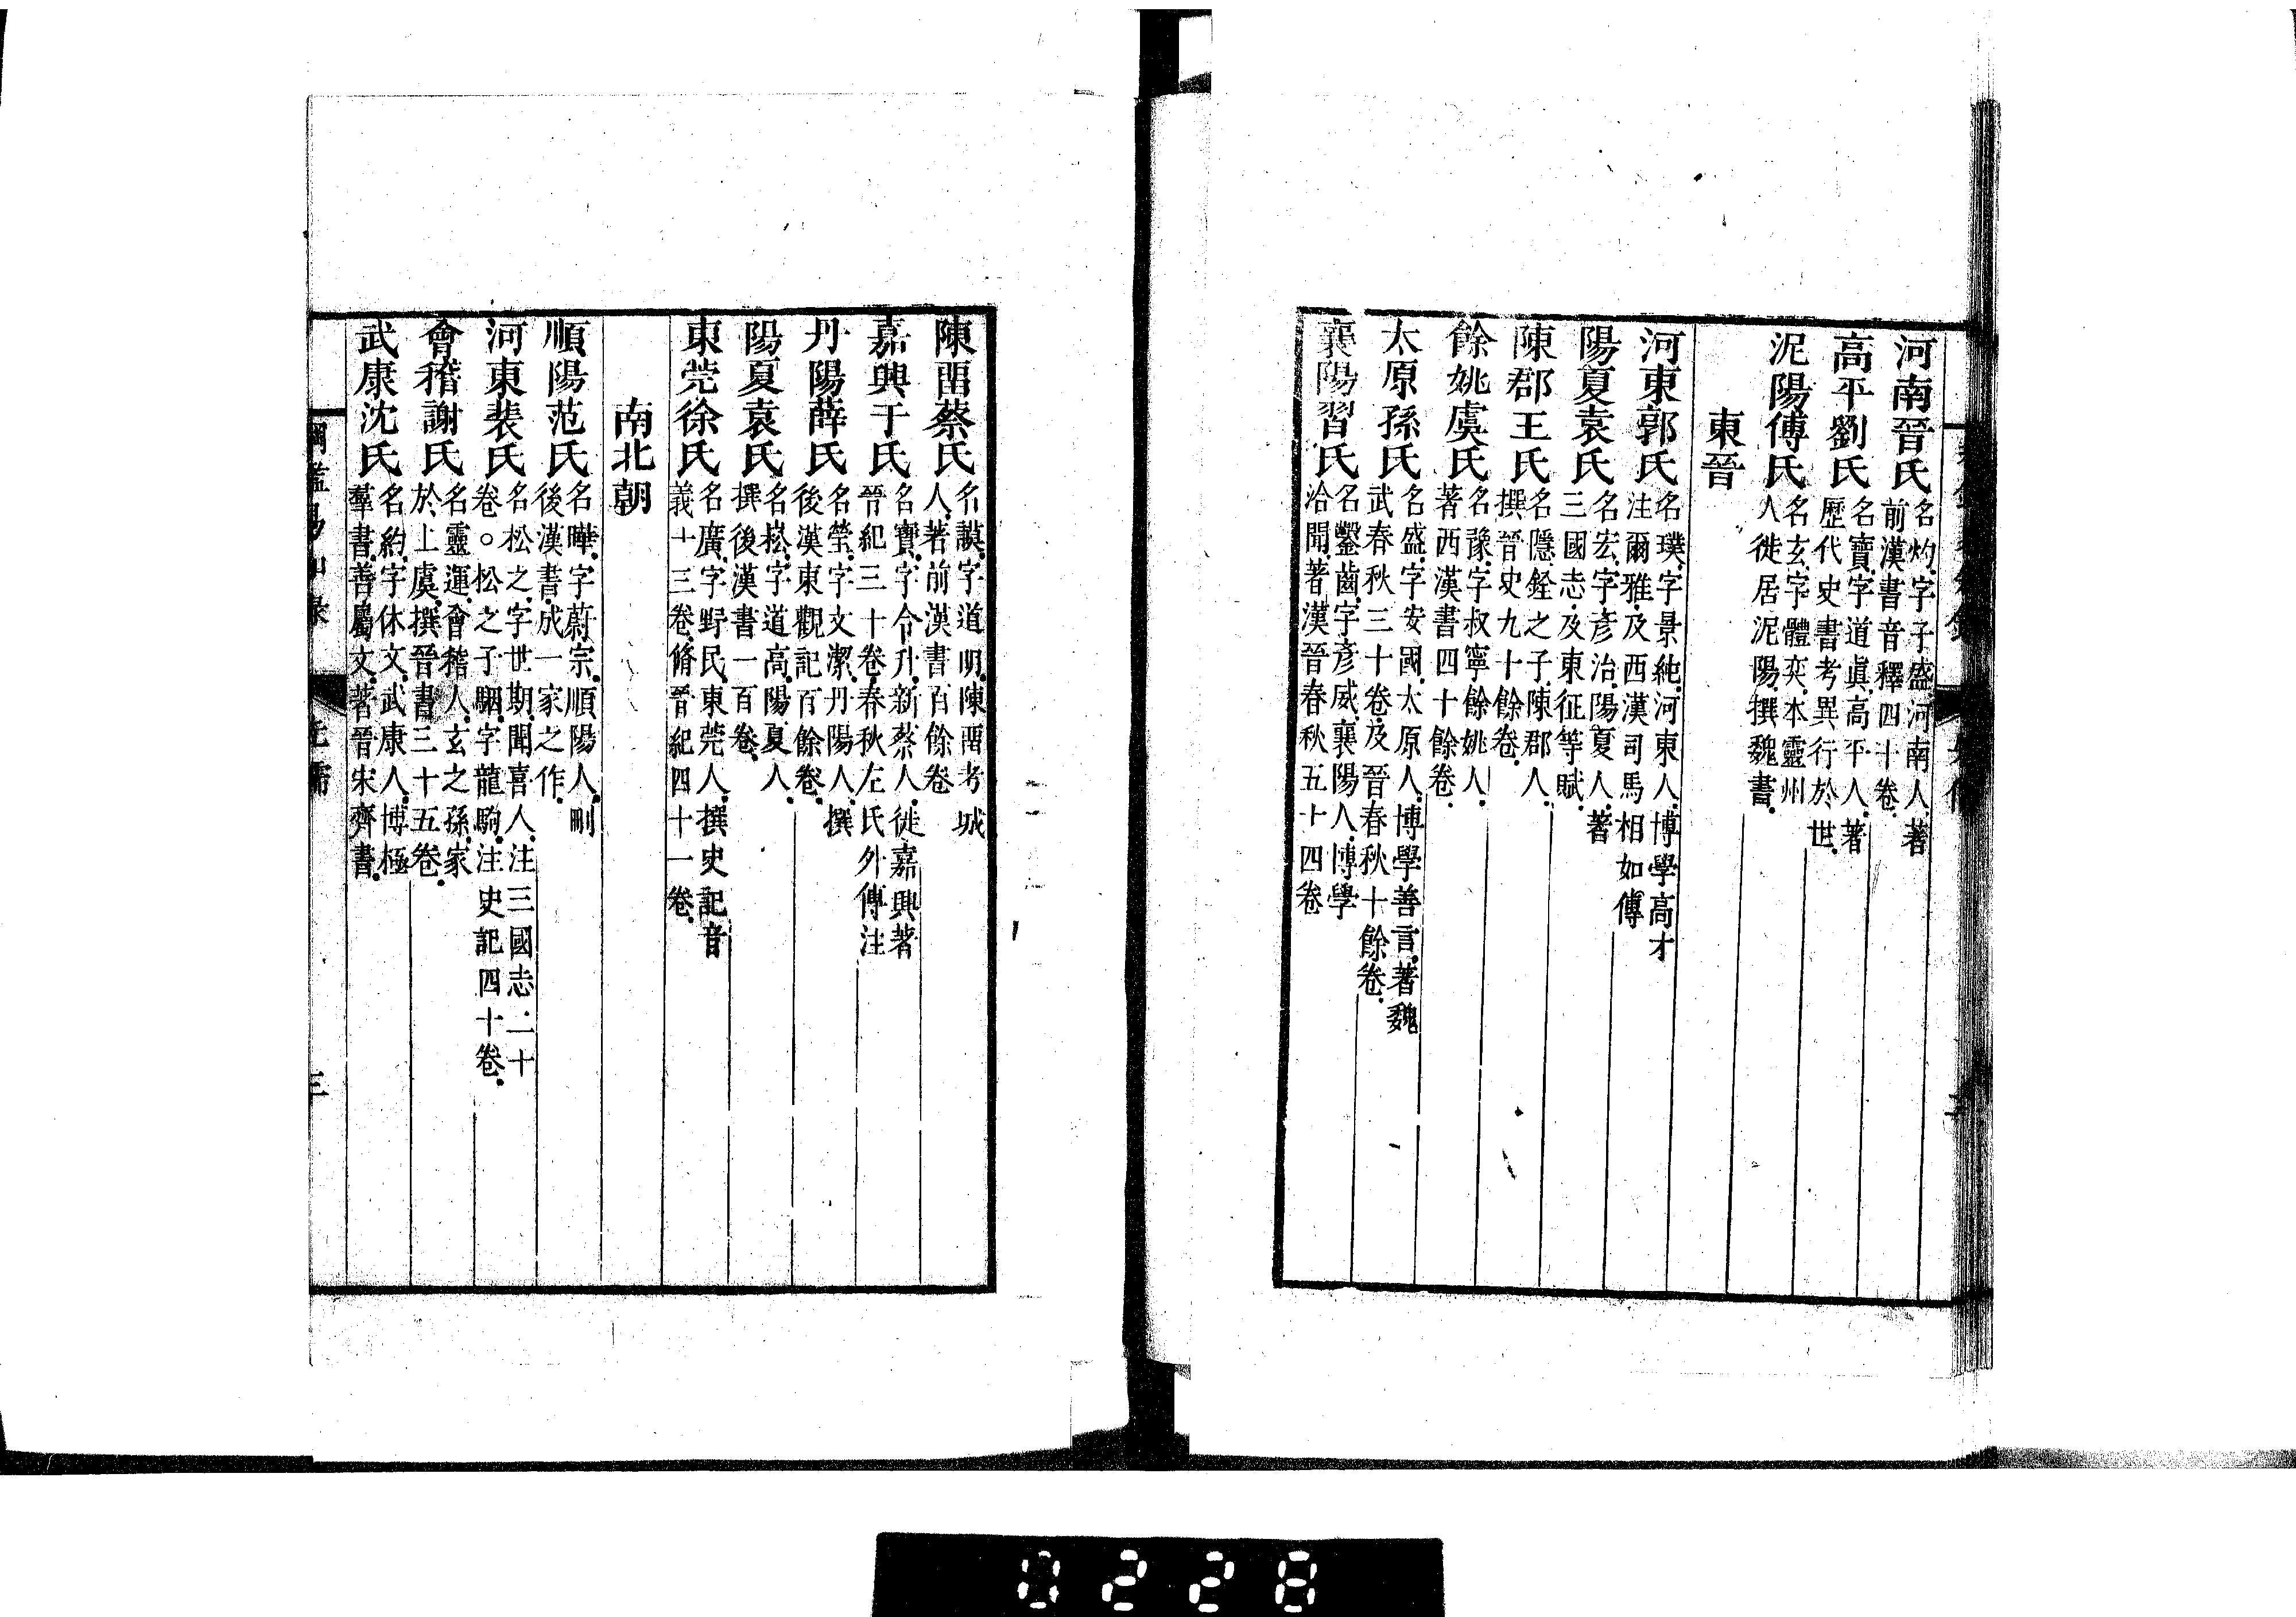 河南晉氏名灼字子盛河南人著
前漢書音釋四十卷
高平劉氏名寶字道眞高平人著
歷代史書考異行於世
泥陽傅氏名玄字體奕本靈州
人徙居泥陽撰魏書
東晉
河東郭氏名璞字景純河東人博學高才
注爾雅及西漢司馬相如傳
陽夏袁氏名宏字彥治陽夏人著
三國志及東征等賦
陳郡王氏名隱銓之子陳郡人
撰晉史九十餘卷
餘姚虞氏名豫字叔寧餘姚人
著西漢書四十餘卷
太原孫氏名盛字安國太原人博學善言著魏
武春秋三十卷及晉春秋十餘卷
襄陽習氏名鑿齒字彥威襄陽人博學
洽聞著漢晉春秋五十四卷
陳畱蔡氏名謨字道明陳畱考城
人著前漢書百餘卷
嘉興于氏名寶字令升新蔡人徙嘉興著
晉紀三十卷春秋左氏外傳注
丹陽薛氏名瑩字文潔丹陽人撰
後漢東觀記百餘卷
陽夏袁氏名崧字道高陽夏人
撰後漢書一百卷
東莞徐氏名廣字野民東莞人撰史記音
義十三卷脩晉紀四十一卷
南北朝
順陽范氏名曄字蔚宗順陽人刪
後漢書成一家之作
河東裴氏名松之字世期聞喜人注三國志二十
卷○松之子駰字龍駒注史記四十卷
會稽謝氏名靈運會稽人玄之孫家
於上虞撰晉書三十五卷
武康沈氏名約字休文武康人博極
羣書善屬文著晉宋齊書
綱鑑易知錄
先儒
三